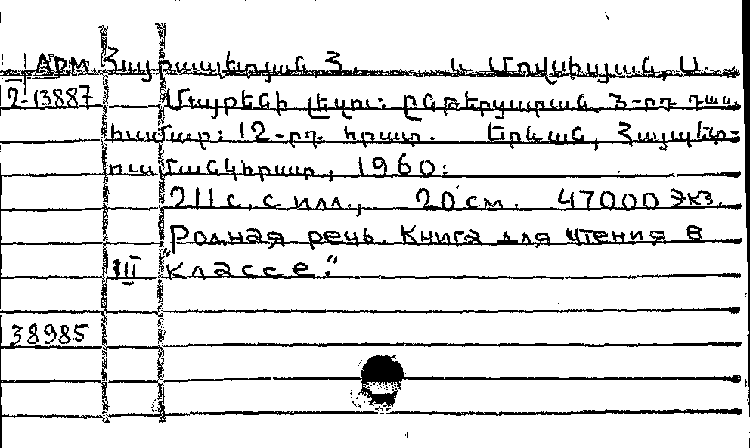 АРМ Հայրապետյան Հ. և Մովսիսյան, Ս.
2-13887 Մայրենի լեզու: ընթերցարան 3-րդ դաս.
համար: 12-րդ հրատ. Երևան, Հայպետ-
ուսմանկհրատ, 1960:
211 с. с илл., 20 см. 47000 экз.
"Родная речь. Книга для чтения в
III классе."
38985